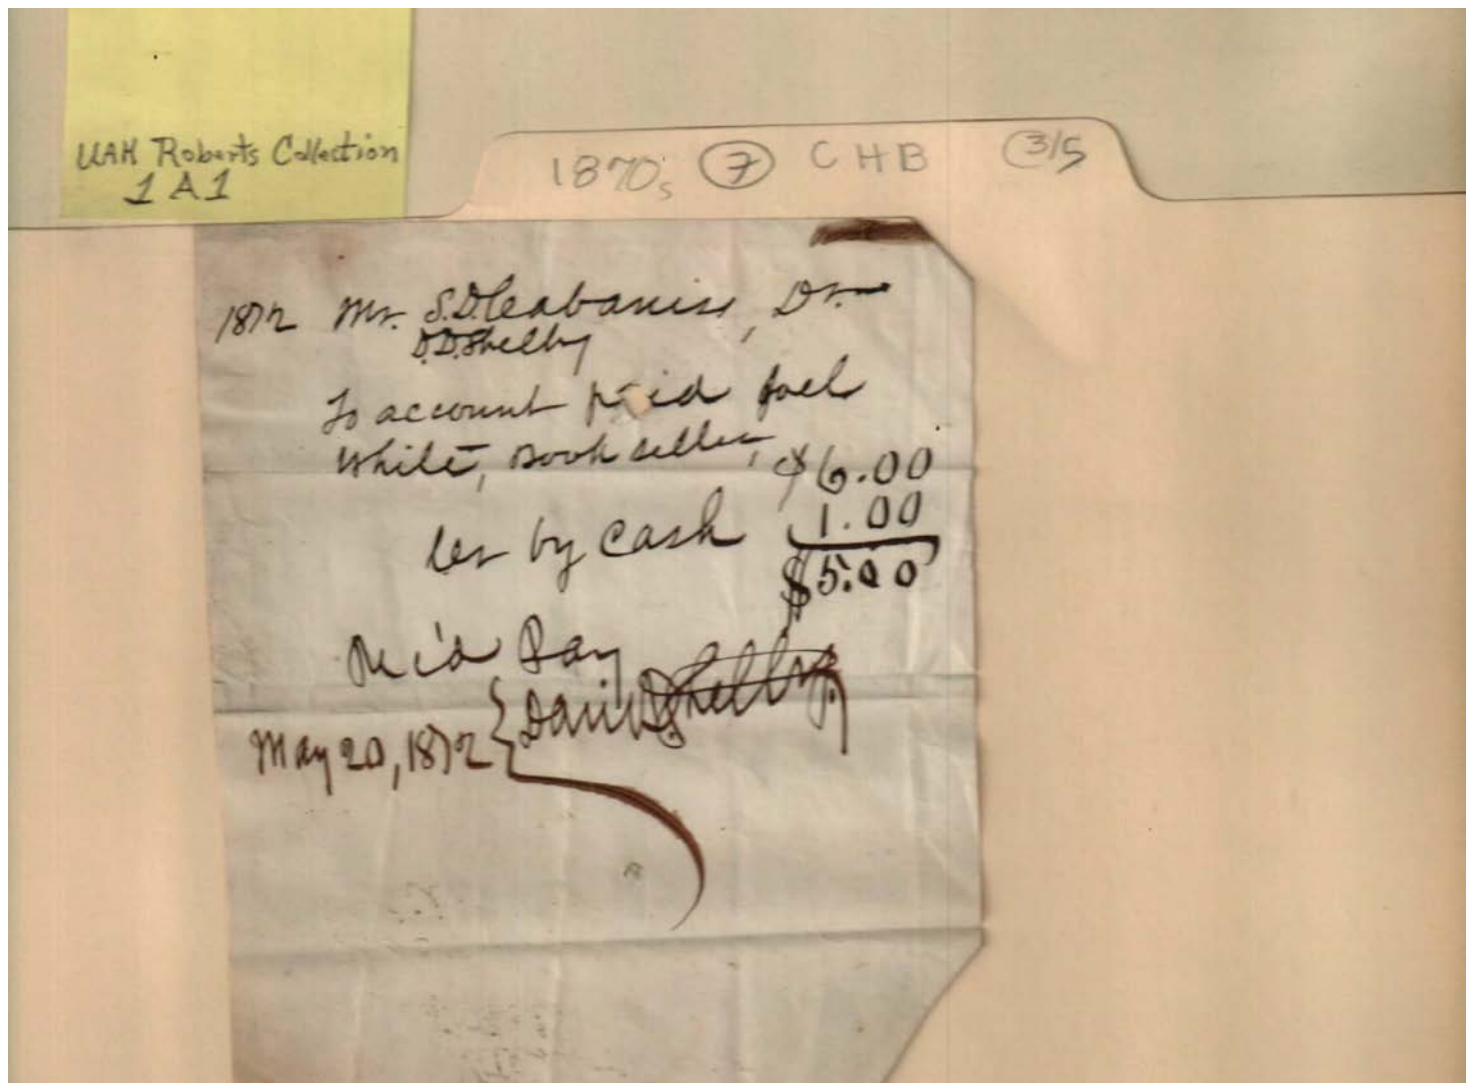 UAH Roberts Collection
1 A 1
1870s 7 CHB 3/5
1872 Mr. S.D. Cabaniss, Dr.
D.D. Shelby
To account paid Joel
White, Book seller, $6.00
les by cash 1.00
$5.00
Rec'd Pay
May 20, 1872 } David D. Shelby.